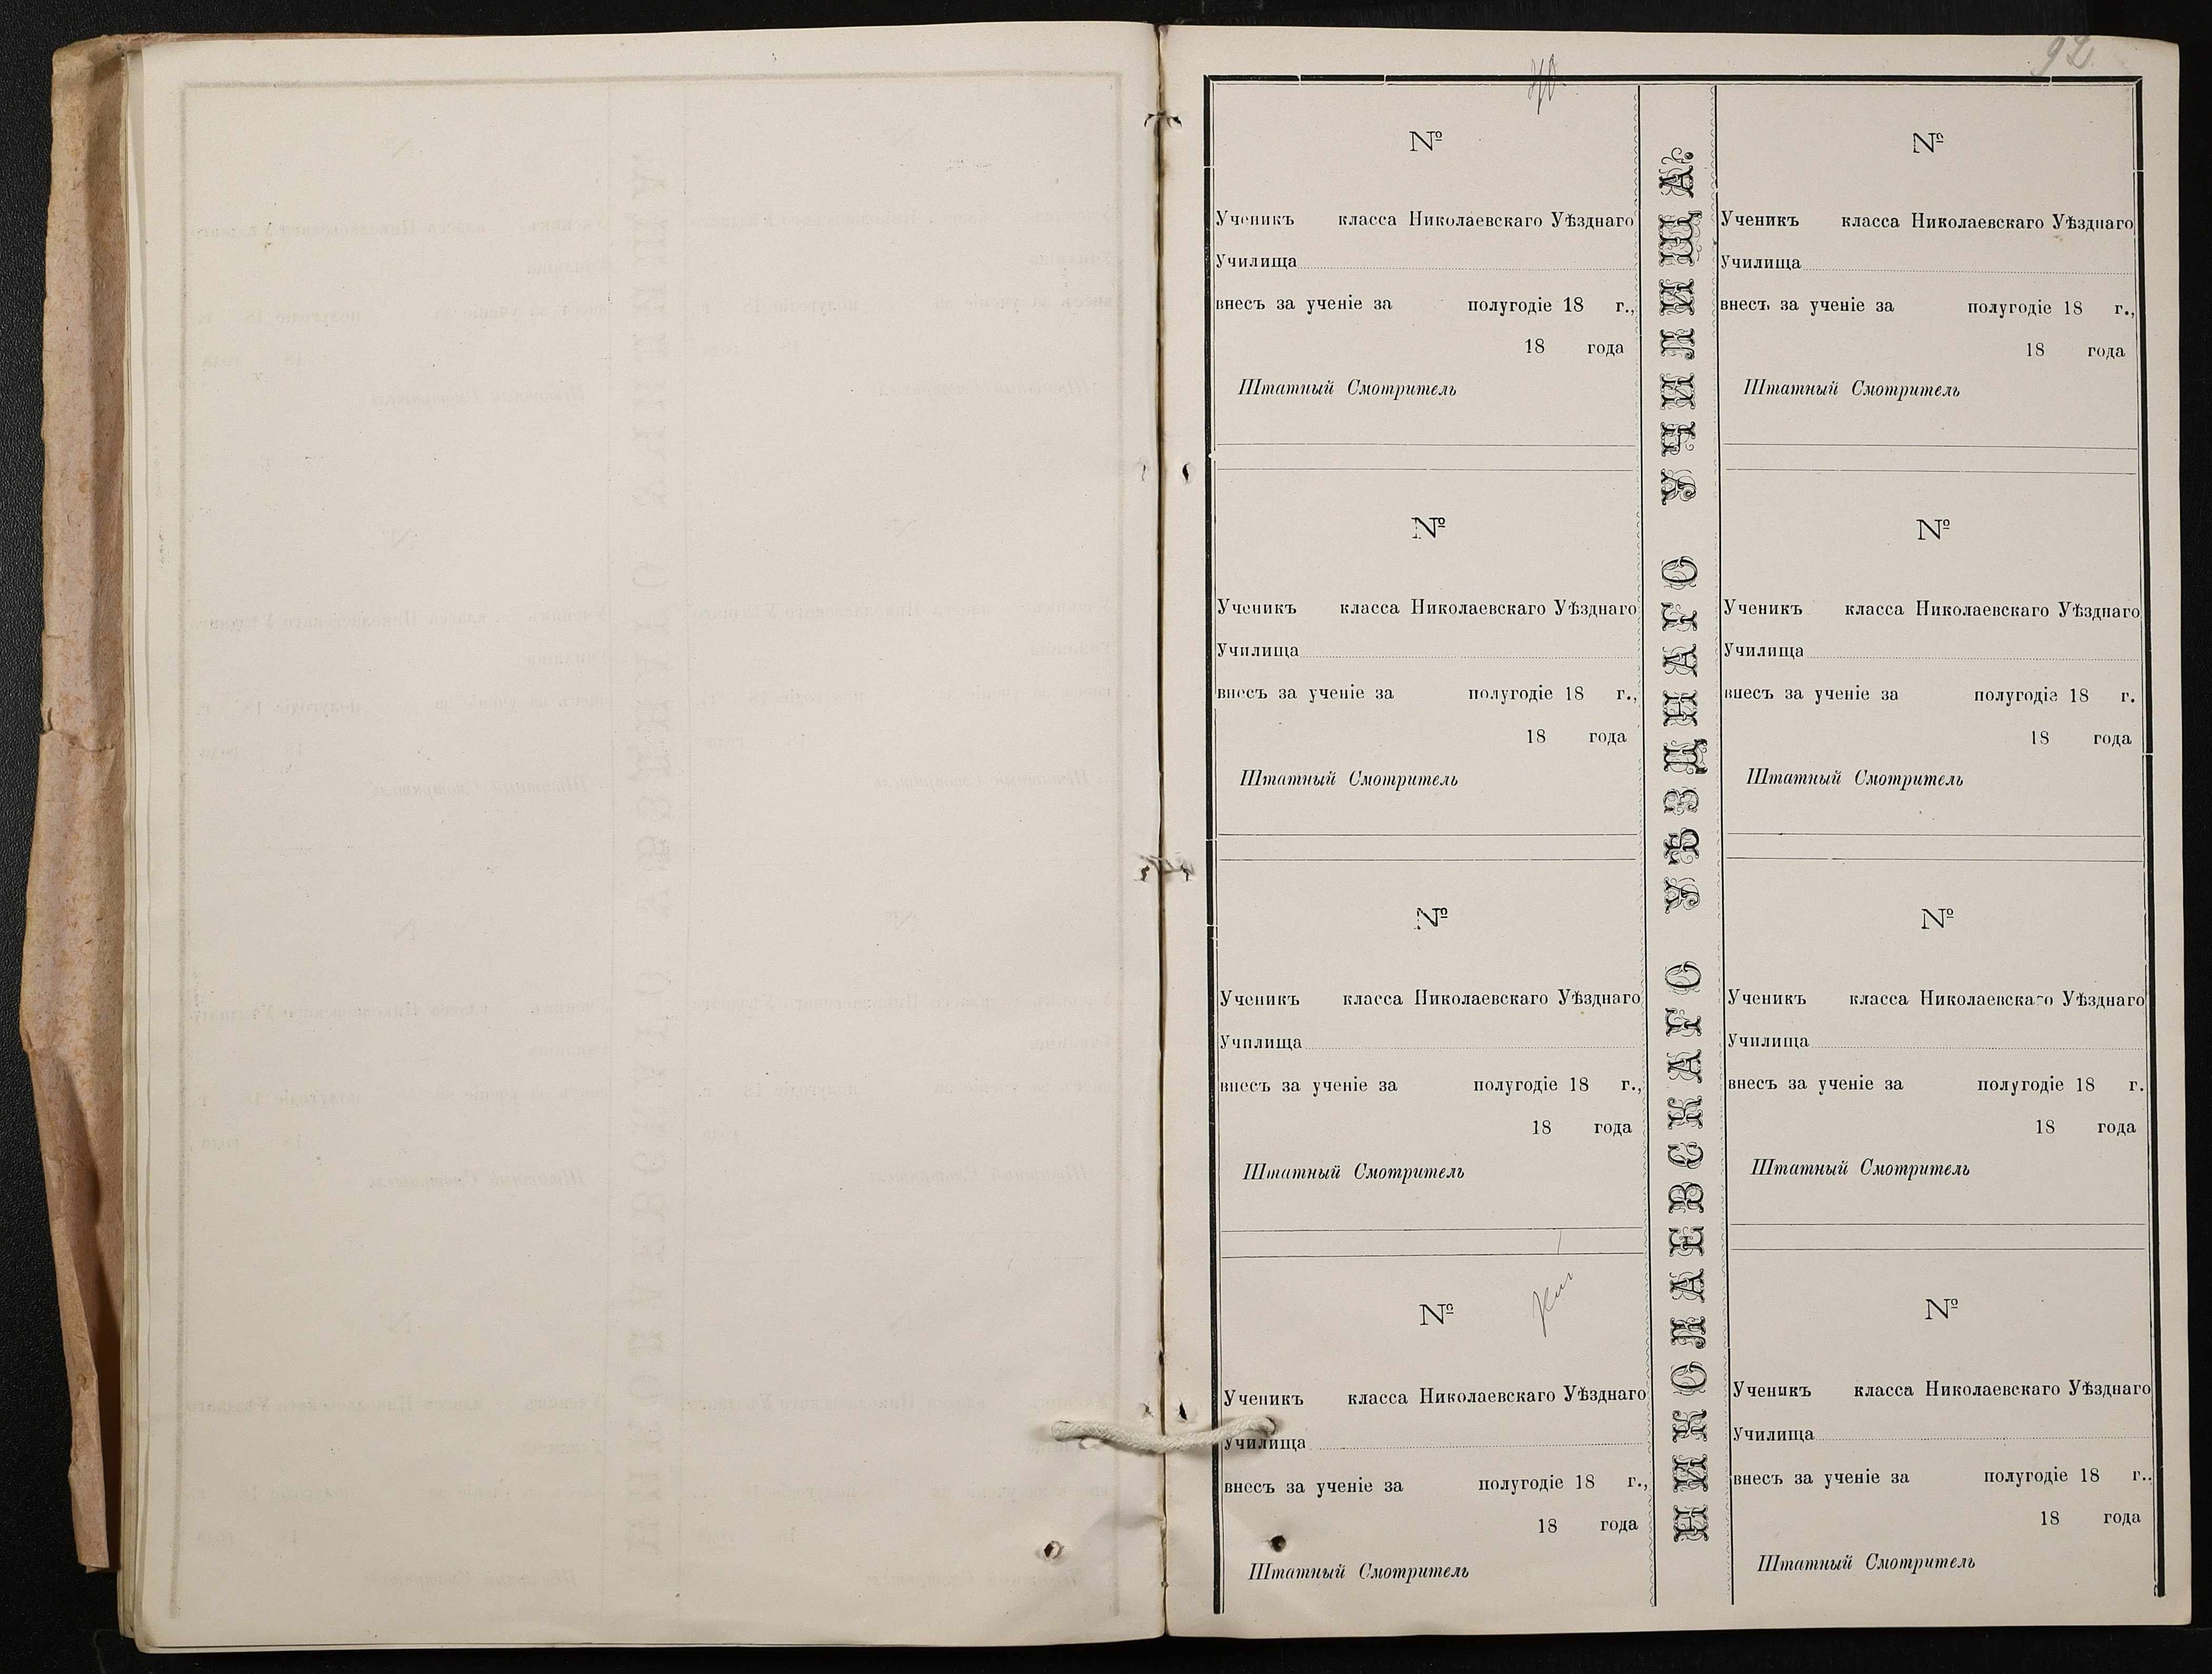 92
№
Ученикъ класса Николаевскаго Уѣзднаго
Училища
внесъ за ученіе за полугодіе 18 г.,
18 года
Штатный Смотритель
№
Ученикъ класса Николаевскаго Уѣзднаго
Училища
внесъ за ученіе за полугодіе 18 г.,
18 года
Штатный Смотритель
№
Ученикъ класса Николаевскаго Уѣзднаго
Училища
внесъ за ученіе за полугодіе 18 г.,
18 года
Штатный Смотритель
№
Ученикъ класса Николаевскаго Уѣзднаго
Училища
внесъ за ученіе за полугодіе 18 г.,
18 года
Штатный Смотритель
НИКОЛАЕВСКАГО УѢЗДНАГО УЧИЛИЩА.
№
Ученикъ класса Николаевскаго Уѣзднаго
Училища
внесъ за ученіе за полугодіе 18 г.,
18 года
Штатный Смотритель
№
Ученикъ класса Николаевскаго Уѣзднаго
Училища
внесъ за ученіе за полугодіе 18 г.
18 года
Штатный Смотритель
№
Ученикъ класса Николаевскаго Уѣзднаго
Училища
внесъ за ученіе за полугодіе 18 г.
18 года
Штатный Смотритель
№
Ученикъ класса Николаевскаго Уѣзднаго
Училища
внесъ за ученіе за полугодіе 18 г.,
18 года
Штатный Смотритель